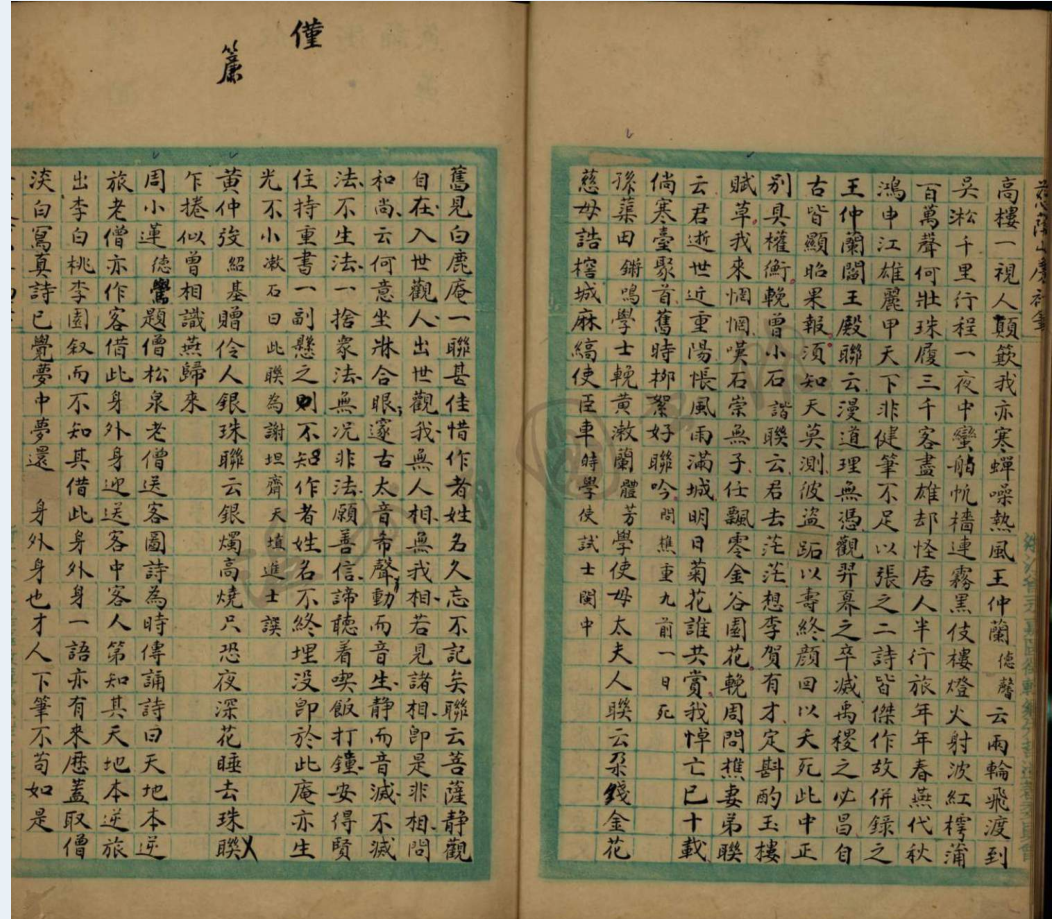 高樓一視人顛簸我亦寒蟬噪熱風王仲蘭德馨云兩輪飛渡到
吳淞千里行程一夜中蠻舶帆檣連霧黑伎樓燈火射波紅樗蒲
百萬聲何壯珠履三千客盡雄却怪居人半行旅年年春燕代秋
鴻申江雄麗甲天下非健筆不足以張之二詩皆傑作故併錄之
王仲蘭閻王殿聯云漫道理無憑觀羿奡之卒滅禹稷之必昌自
古皆顯昭果報須知天莫測彼盜跖以壽終顏回以夭死此中正
別具權衡輓曾小石諧聯云君去茫茫想李賀有才定斟酌玉樓
賦草我來惘惘嘆石崇無子任飄零金谷園花輓周問樵妻弟聯
云君逝世近重陽悵風雨滿城明日菊花誰共賞我悼亡已十載
倘寒臺聚首舊時柳絮好聯吟問樵重九前一日死
孫蕖田鏘鳴學士輓黃漱蘭體芳學使母太夫人聯云朶錢金花
慈母誥榕城麻縞使臣車時學使試士閩中
僅
簾
舊見白鹿庵一聯甚佳惜作者姓名久忘不記矣聯云菩薩靜觀
自在入世觀人出世觀我無人相無我相若見諸相即是非相問
和尚云何意坐牀合眼邃古太音希聲動而音生靜而音滅不滅
法不生法一捨衆法無况非法願善信諦聽着喫飯打鐘安得賢
住持重書一副懸之則不知作者姓名不終埋没即於此庵亦生
光不小漱石曰此聯為謝坦齋天埴進士譔
黃仲弢紹基贈伶人銀珠聯云銀燭高燒只恐夜深花睡去珠聯
乍捲似曾相識燕歸來
周小蓮德鸞題僧松泉老僧送客圖詩為時傳誦詩曰天地本逆
旅老僧亦作客借此身外身迎送客中客人第知其天地本逆旅
出李白桃李園叙而不知其借此身外身一語亦有來歷蓋取僧
淡白寫真詩已覺夢中夢還 身外身也才人下筆不苟如是